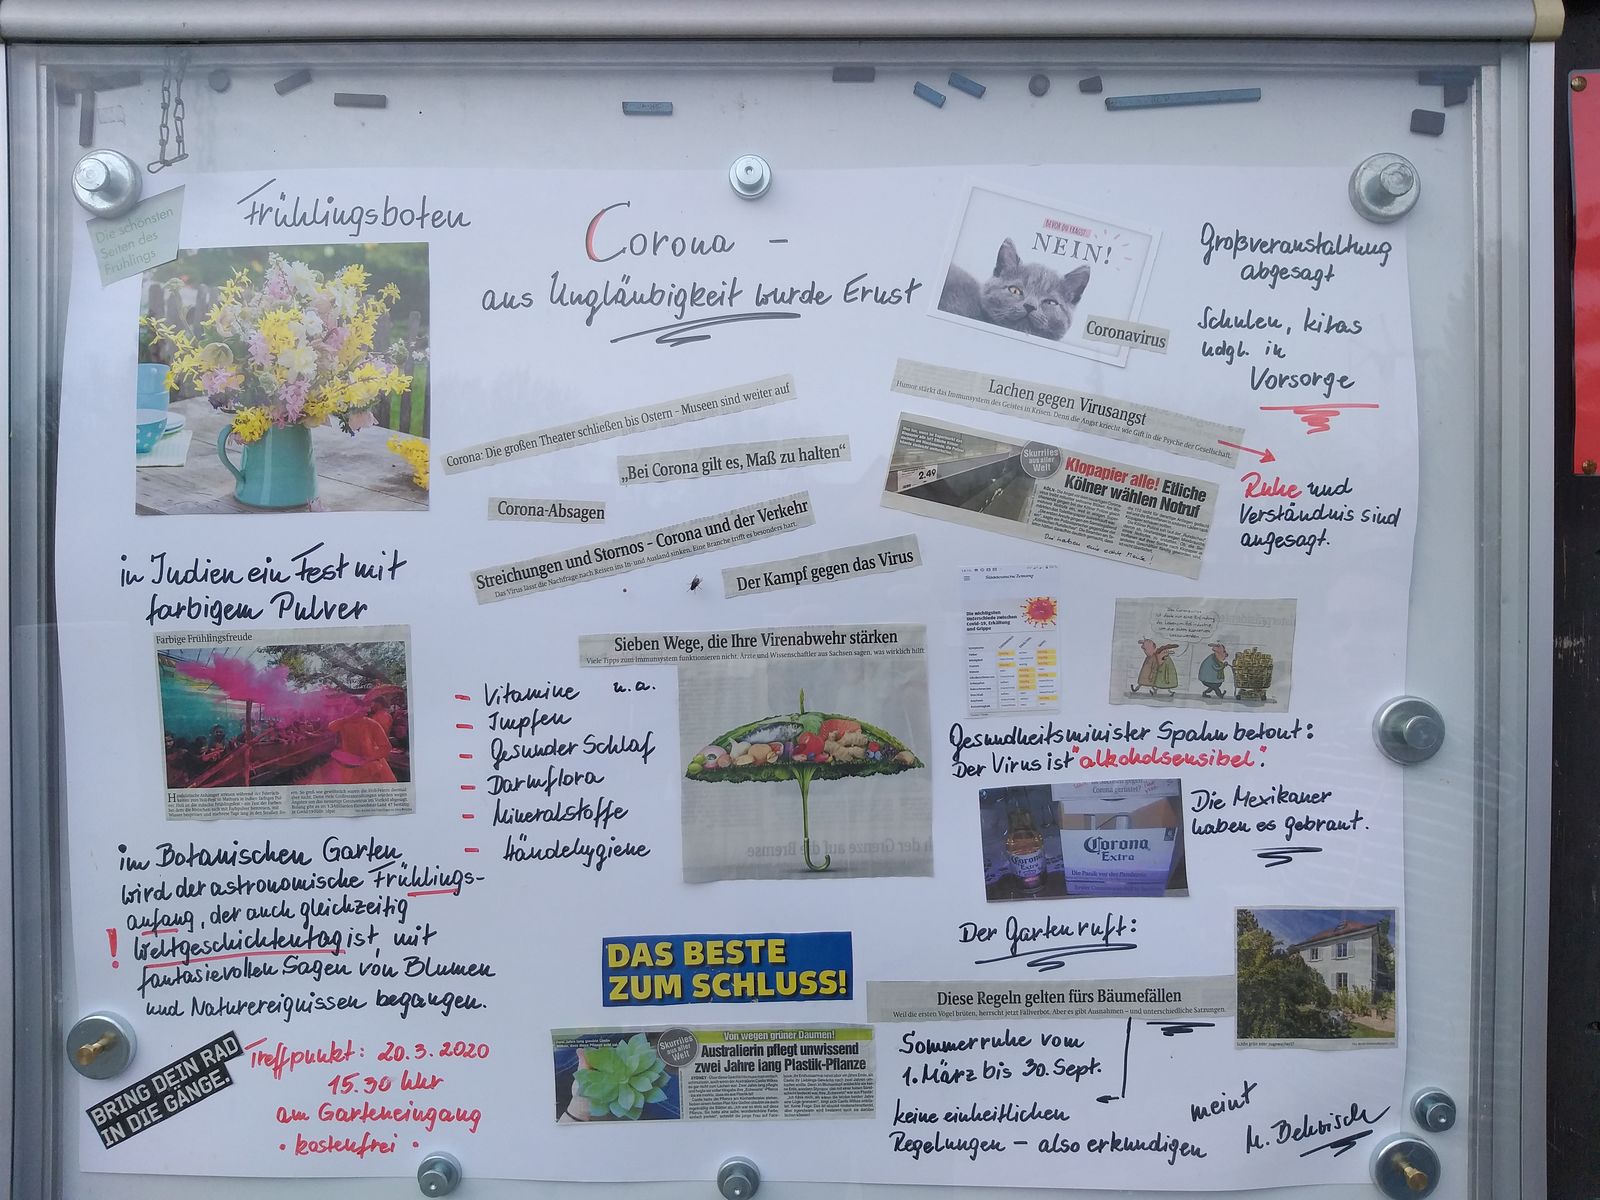 Die schönsten
Seiten des
Frühlings
Frühlingsboten
in Indien ein Fest mit
farbigem Pulver
Farbige Frühlingsfreude
im Botanischen Garten
wird der astronomische Frühlings-
anfang, der auch gleichzeitig
! Weltgeschichtentag ist, mit
fantasievollen Sagen von Blumen
und Naturereignissen begangen.
BRING DEIN RAD
IN DIE GÄNGE.
Treffpunkt: 20.3.2020
15.30 Uhr
am Garteneingang
• kostenfrei •
Corona –
aus Ungläubigkeit wurde Ernst
Corona: Die großen Theater schließen bis Ostern - Museen sind weiter auf
„Bei Corona gilt es, Maß zu halten“
Corona-Absagen
Streichungen und Stornos – Corona und der Verkehr
Das Virus lässt die Nachfrage nach Reisen ins In- und Ausland sinken. Eine Branche trifft es besonders hart.
Der Kampf gegen das Virus
Sieben Wege, die Ihre Virenabwehr stärken
Viele Tipps zum Immunsystem funktionieren nicht. Ärzte und Wissenschaftler aus Sachsen sagen, was wirklich hilft.
- Vitamine u.a.
- Impfen
- Gesunder Schlaf
- Darmflora
- Mineralstoffe
- Händehygiene
DAS BESTE
ZUM SCHLUSS!
Skurriles
aus aller
Welt
Von wegen grüner Daumen!
Australierin pflegt unwissend
zwei Jahre lang Plastik-Pflanze
BEVOR DU FRAGST:
NEIN!
Coronavirus
Großveranstaltung
abgesagt
Schulen, kitas
udgl. in
Vorsorge
Lachen gegen Virusangst
Humor stärkt das Immunsystem des Geistes in Krisen. Denn die Angst kriecht wie Gift in die Psyche der Gesellschaft.
2.49
Skurriles
aus aller
Welt
Klopapier alle! Etliche
Kölner wählen Notruf
Ruhe und
Verständnis sind
angesagt.
Süddeutsche Zeitung
Die wichtigsten
Unterschiede zwischen
Covid-19, Erkältung
und Grippe
Gesundheitsminister Spahn betont:
Der Virus ist "alkoholsensibel".
Corona
Extra
Corona
Extra
Die Panik vor der Pandemie
Die Mexikaner
haben es gebraut.
Der Garten ruft:
Diese Regeln gelten fürs Bäumefällen
Weil die ersten Vögel brüten, herrscht jetzt Fällverbot. Aber es gibt Ausnahmen – und unterschiedliche Satzungen.
Sommerruhe vom
1. März bis 30. Sept.
keine einheitlichen
Regelungen – also erkundigen
meint
M. Behrisch